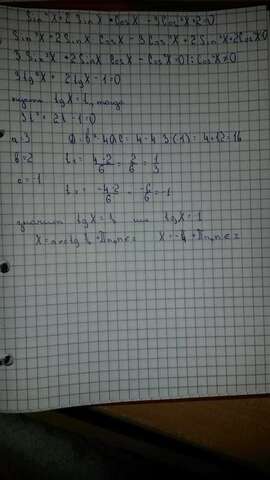 Sin²X+2 SinX • CosX - 3Cos²X+2=0
Sin²X+2SinX CosX - 3Cos²X+2Sin²X+2Cos²X=0
3Sin²X+2SinX CosX - Cos²X=0 |: Cos²X≠0
3tg²X+ 2tgX-1=0
пусть tgX=t, тогда
3t²+ 2t-1=0
a=3 D=b²-4ac= 4-4·3·(-1)= 4+12=16
b=2 t₁= (4-2)/6 = 2/6 = 1/3
c=-1
t₂= (-4-2)/6 = -6/6 = -1
значит tgX= или tgX= 1
X=arctg +πn, n∈z X=- +πn, n∈z